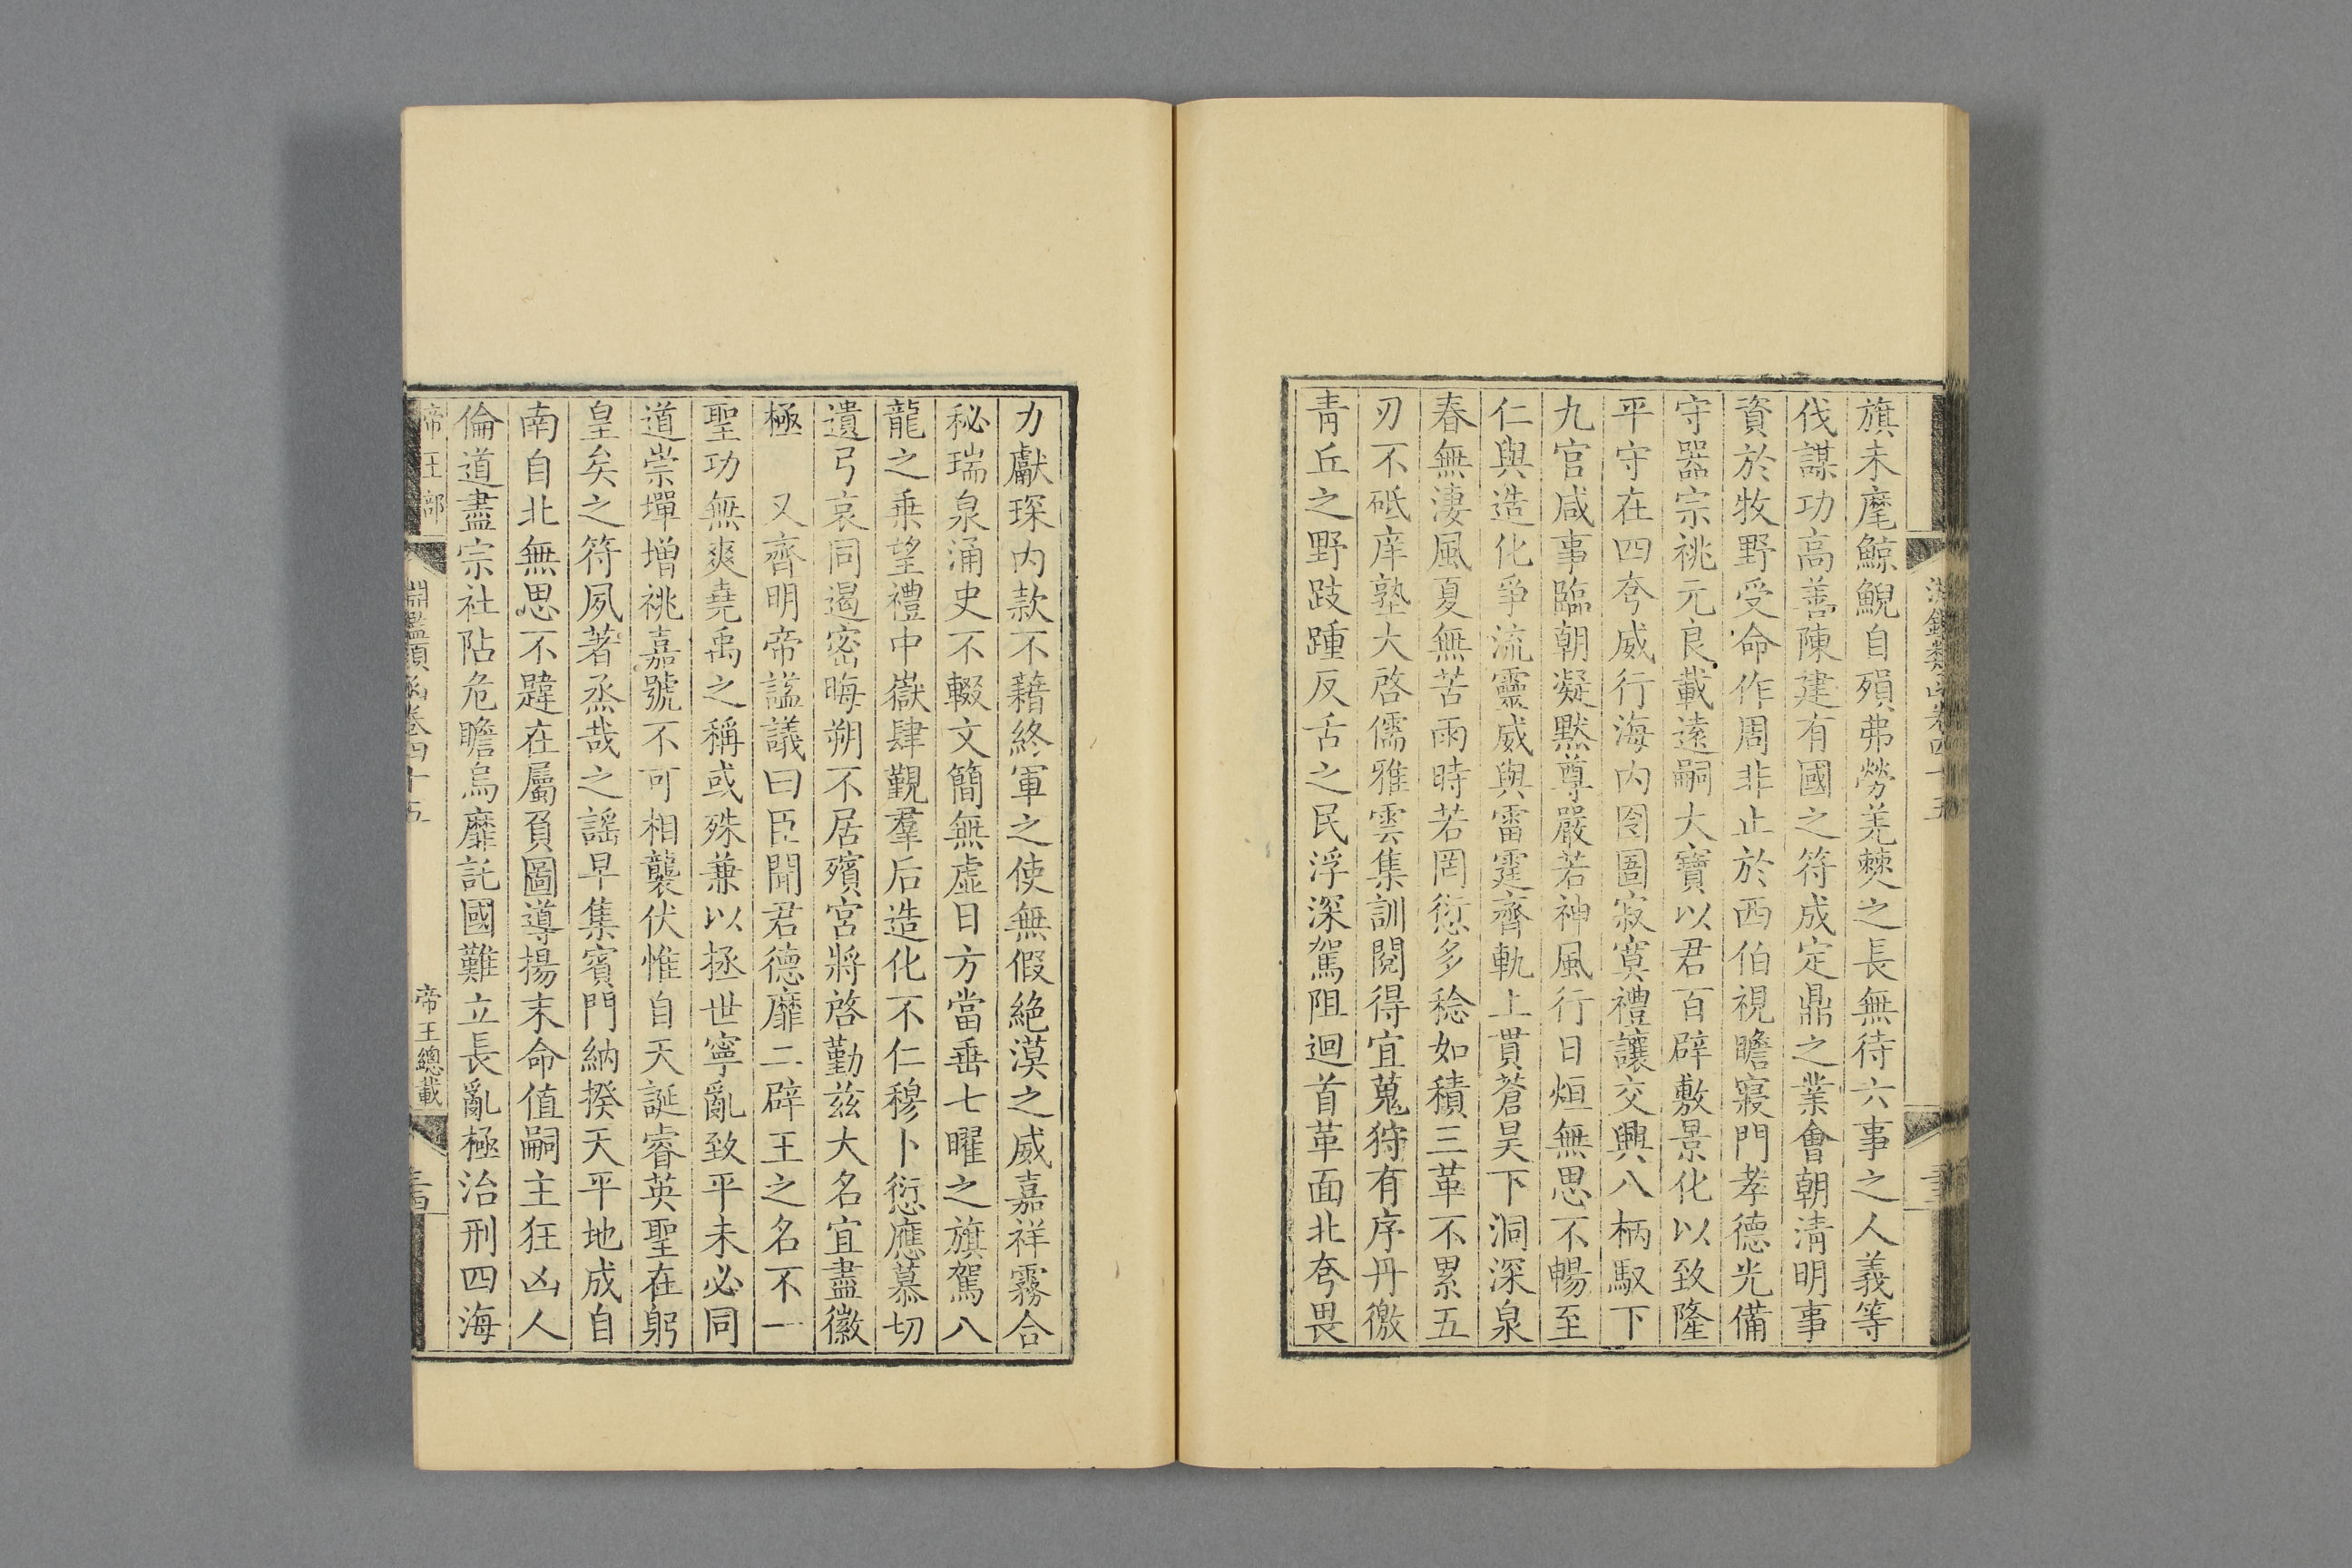 旗未麾鯨鯢自殞弗勞羌㷿之長無待六事之人義等
伐謀功高善陳建有國之符成定鼎之業會朝淸明事
資於牧野受命作周非止於西伯視瞻寢門孝德光備
守器宗祧元良載遠嗣大寶以君百辟敷景化以致隆
平守在四夸威行海内囹圄寂寞禮讓交興八柄馭下
九官咸事臨朝凝默尊嚴若神風行日烜無思不暢至
仁與造化爭流靈威與雷霆齊軌上貫蒼昊下洞深泉
春無淒風夏無苦雨時若罔愆多稔如積三革不累五
刃不砥庠塾大啓儒雅雲集訓閱得宜蒐狩有序丹徼
靑丘之野跂踵反舌之民浮深駕阻迴首革面北夸畏
力獻琛内款不藉終軍之使無假絶漠之威嘉祥霧合
秘瑞泉涌史不輟文簡無虛日方當垂七曜之旗駕八
龍之乗望禮中嶽肆覲羣后造化不仁穆卜愆應慕切
遺弓哀同遏密晦朔不居殯宮將啓勤兹大名宜盡徽
極　又齊明帝諡議曰臣聞君德靡二辟王之名不一
聖功無爽堯禹之稱或殊兼以拯世寧亂致平未必同
道崇墠增祧嘉號不可相襲伏惟自天誕睿英聖在躬
皇矣之符夙著烝哉之謡早集賓門納揆天平地成自
南自北無思不韙在屬負圖導揚末命值嗣主狂凶人
倫道盡宗社阽危瞻烏靡託國難立長亂極治刑四海
帝王部　淵鑑類函卷四十五　帝王總載